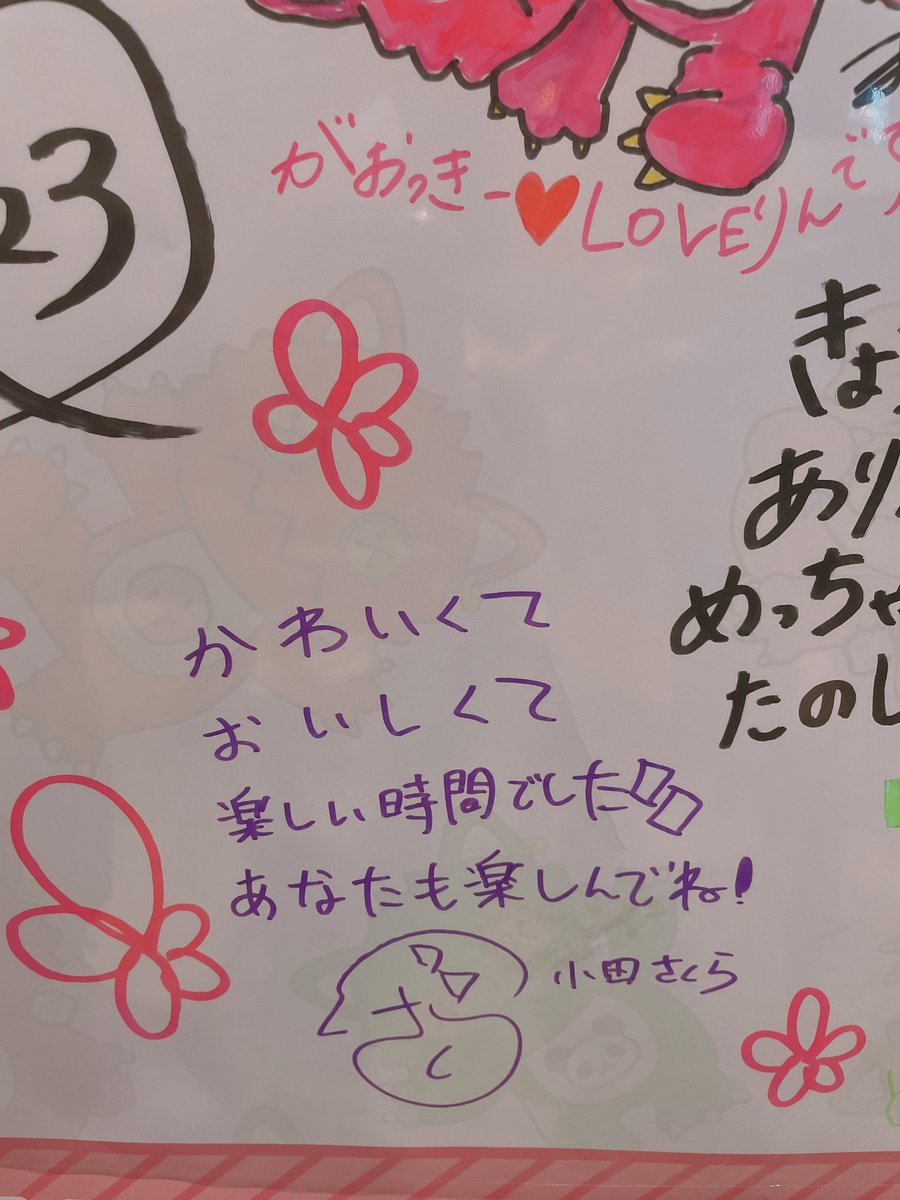 23
がおっきー♥LOVEりんで
きょ
あり
めっちゃ
たのし
かわいくて
おいしくて
楽しい時間でした
あなたも楽しんでね!
小田さくら